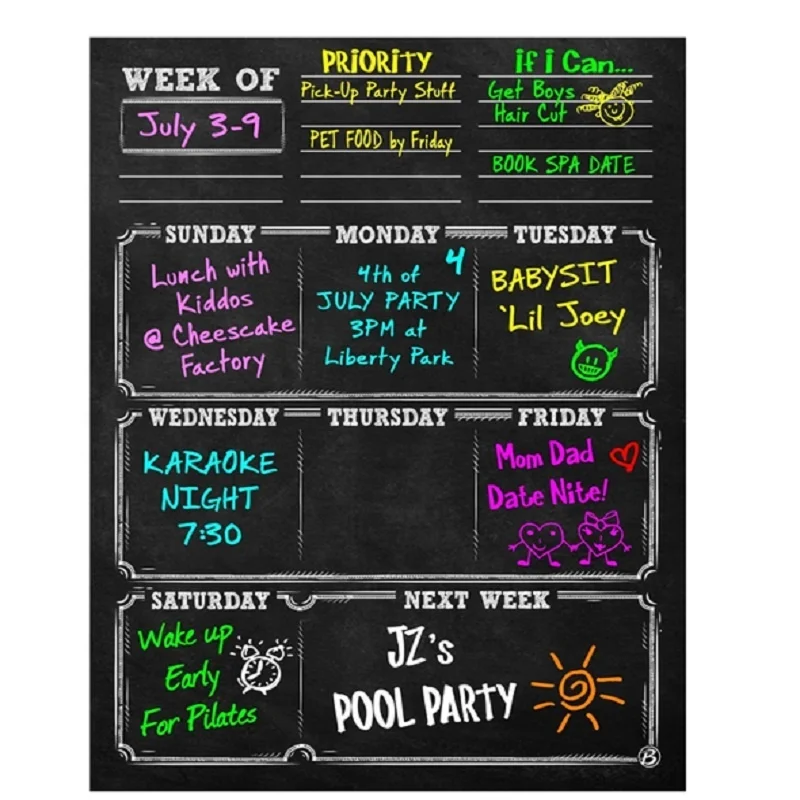 WEEK OF
July 3-9
PRIORITY
Pick-Up Party Stuff
PET FOOD by Friday
if i Can...
Get Boys
Hair Cut
BOOK SPA DATE
SUNDAY
Lunch with
Kiddos
@ Cheescake
Factory
MONDAY
4
4th of
JULY PARTY
3PM at
Liberty Park
TUESDAY
BABYSIT
'Lil Joey
WEDNESDAY
KARAOKE
NIGHT
7:30
THURSDAY
FRIDAY
Mom Dad
Date Nite!
SATURDAY
Wake up
Early
For Pilates
NEXT WEEK
JZ's
POOL PARTY
B